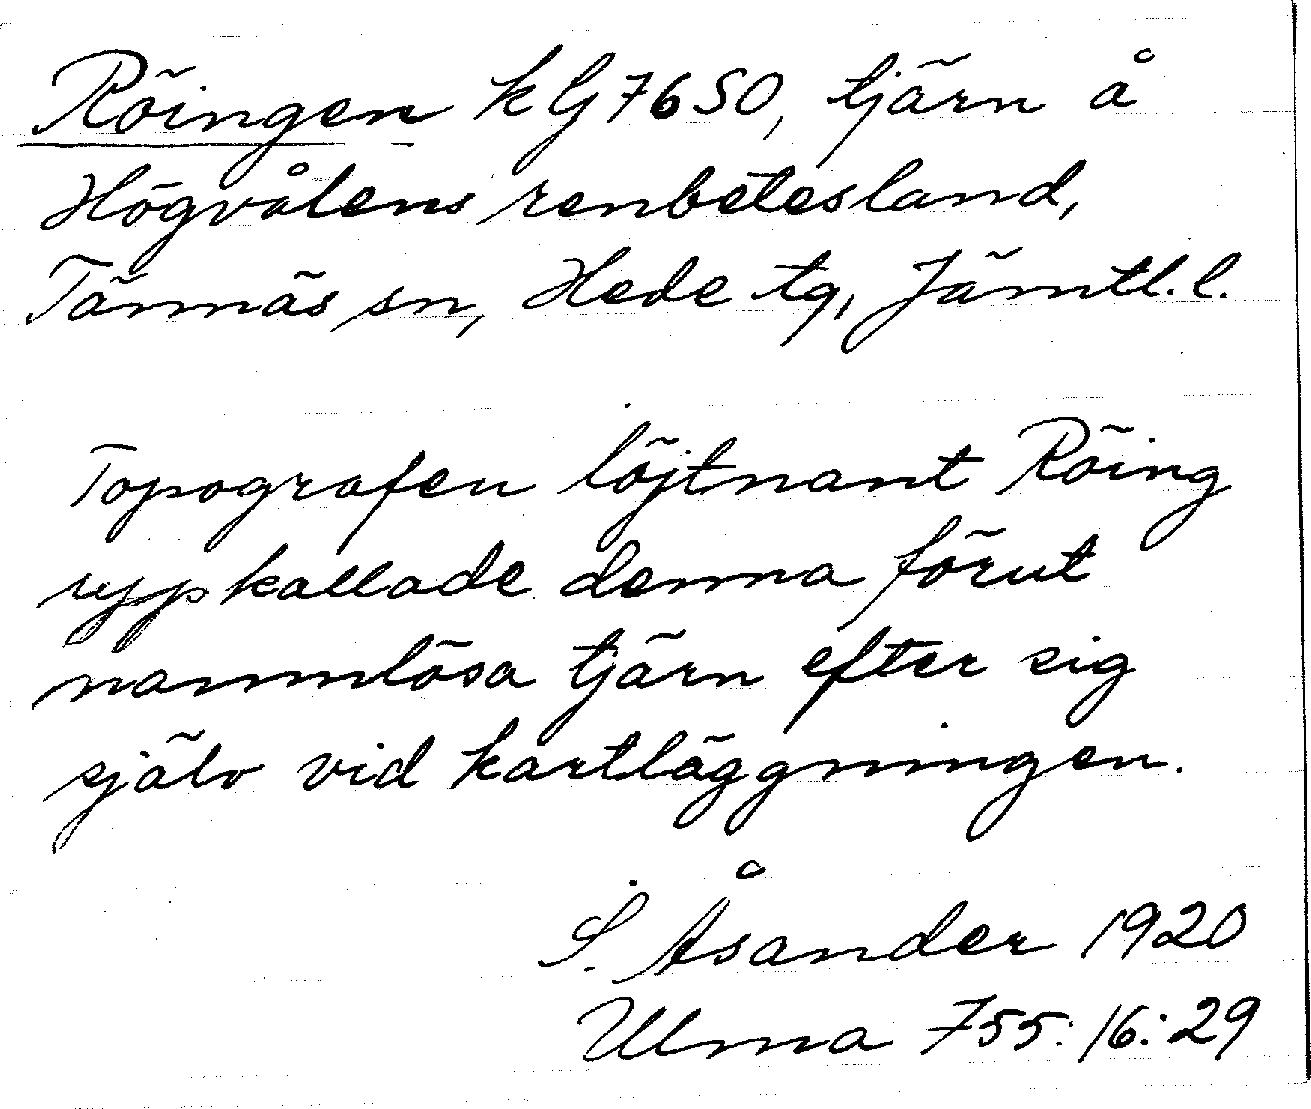 Röingen kG 7650, tjärn å
Högvålens renbetesland,
Tännäs sn, Hede tg, Jämtl. l.
Topografen löjtnant Röing
uppkallade denna förut
namnlösa tjärn efter sig
själv vid kartläggningen.
S. Åsander 1920
Ulma 755: 16: 29